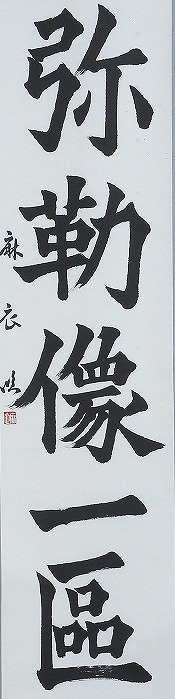 弥勒像一區
麻衣